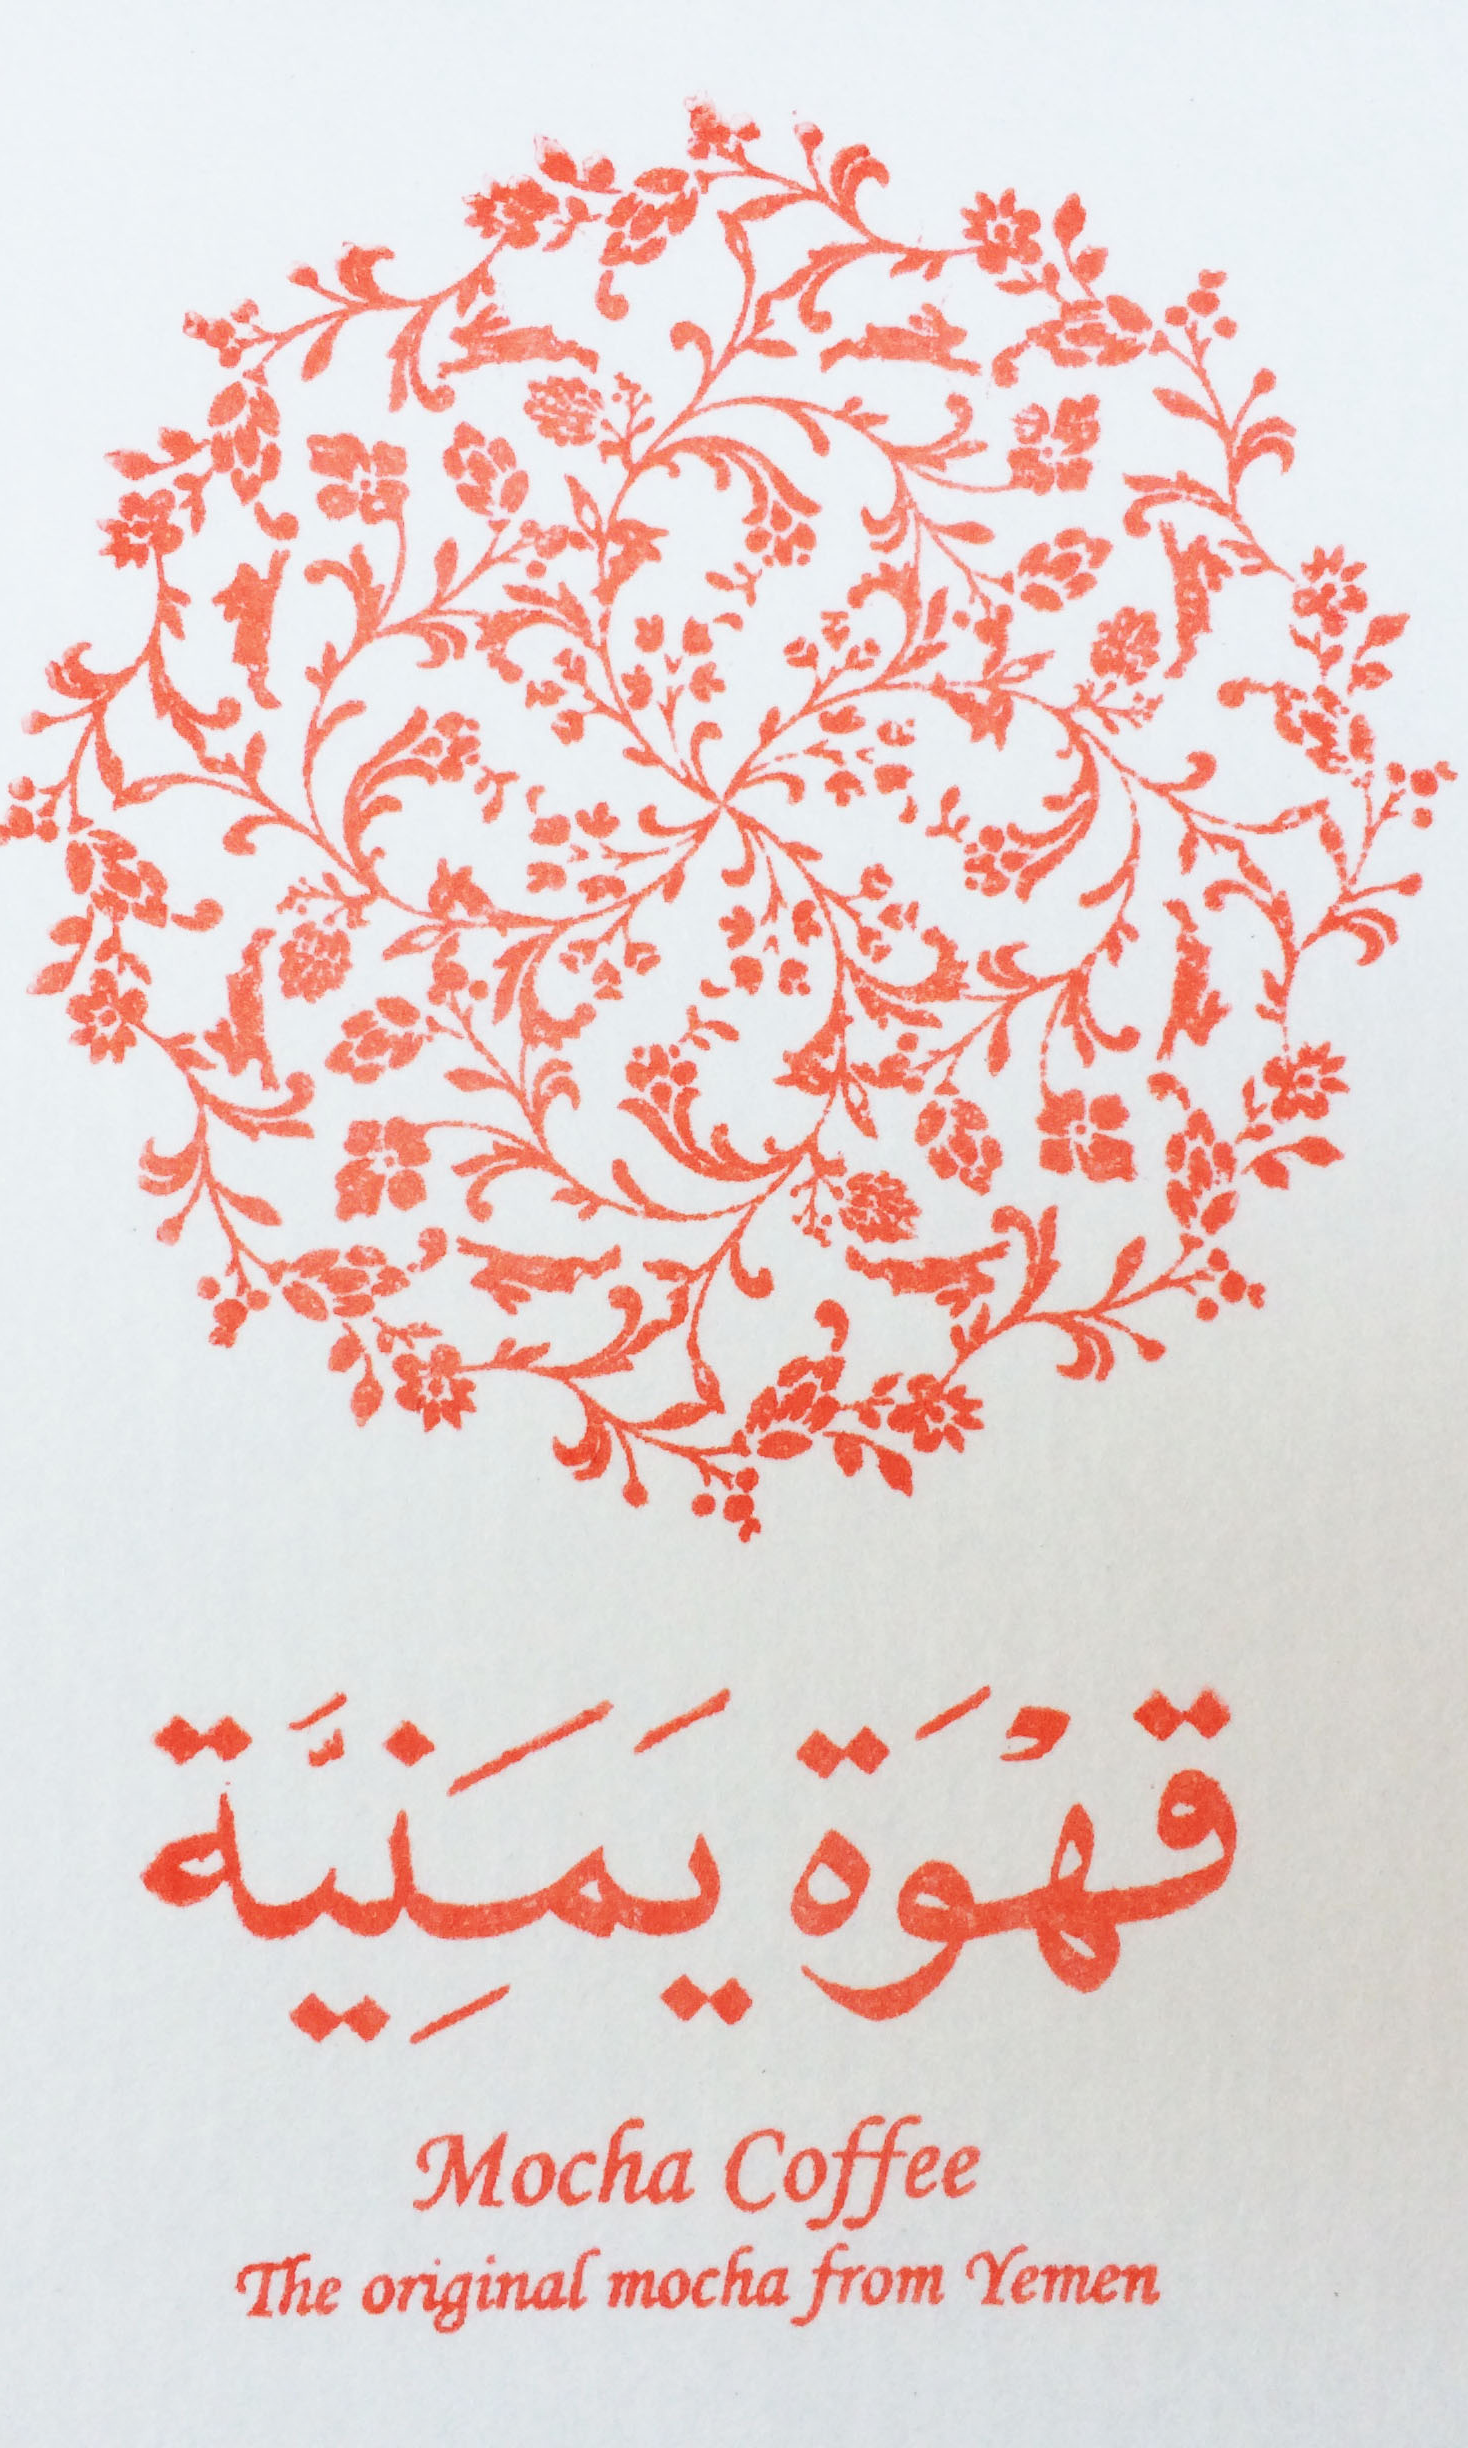 قَهْوَة يَمَنِيَّة
Mocha Coffee
The original mocha from Yemen